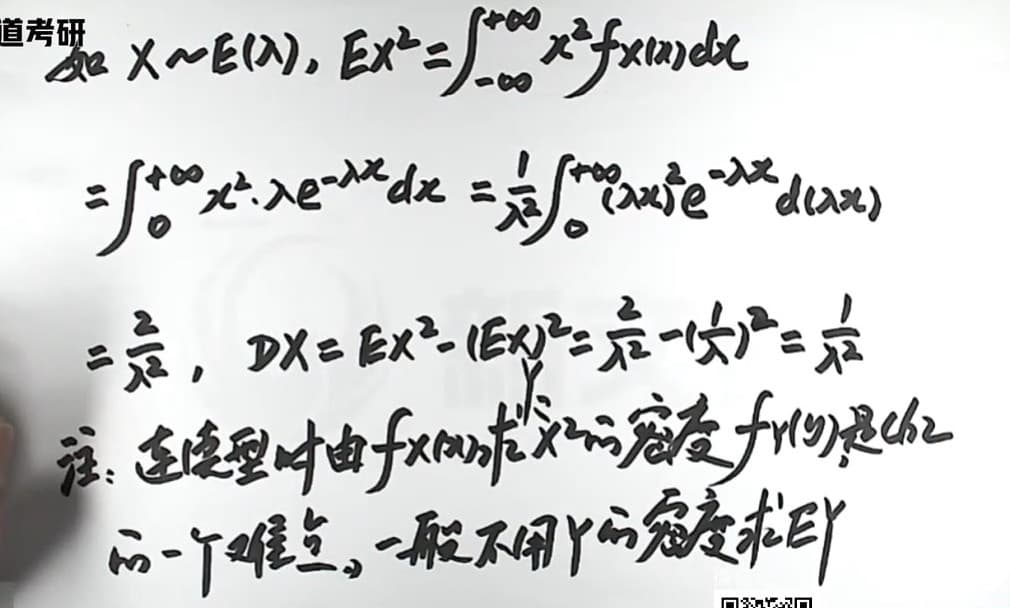 道考研
如 X~E(λ), EX²=∫_{-∞}^{+∞} x²f_X(x)dx
=∫_0^{+∞} x²·λe^{-λx}dx =1/λ² ∫_0^{+∞} (λx)²e^{-λx}d(λx)
=2/λ², DX=EX²-(EX)²=2/λ²-(1/λ)²=1/λ²
Y
注:连续型时由f_X(x)求X²的密度f_Y(y)是ch2
的一个难点,一般不用Y的密度求EY